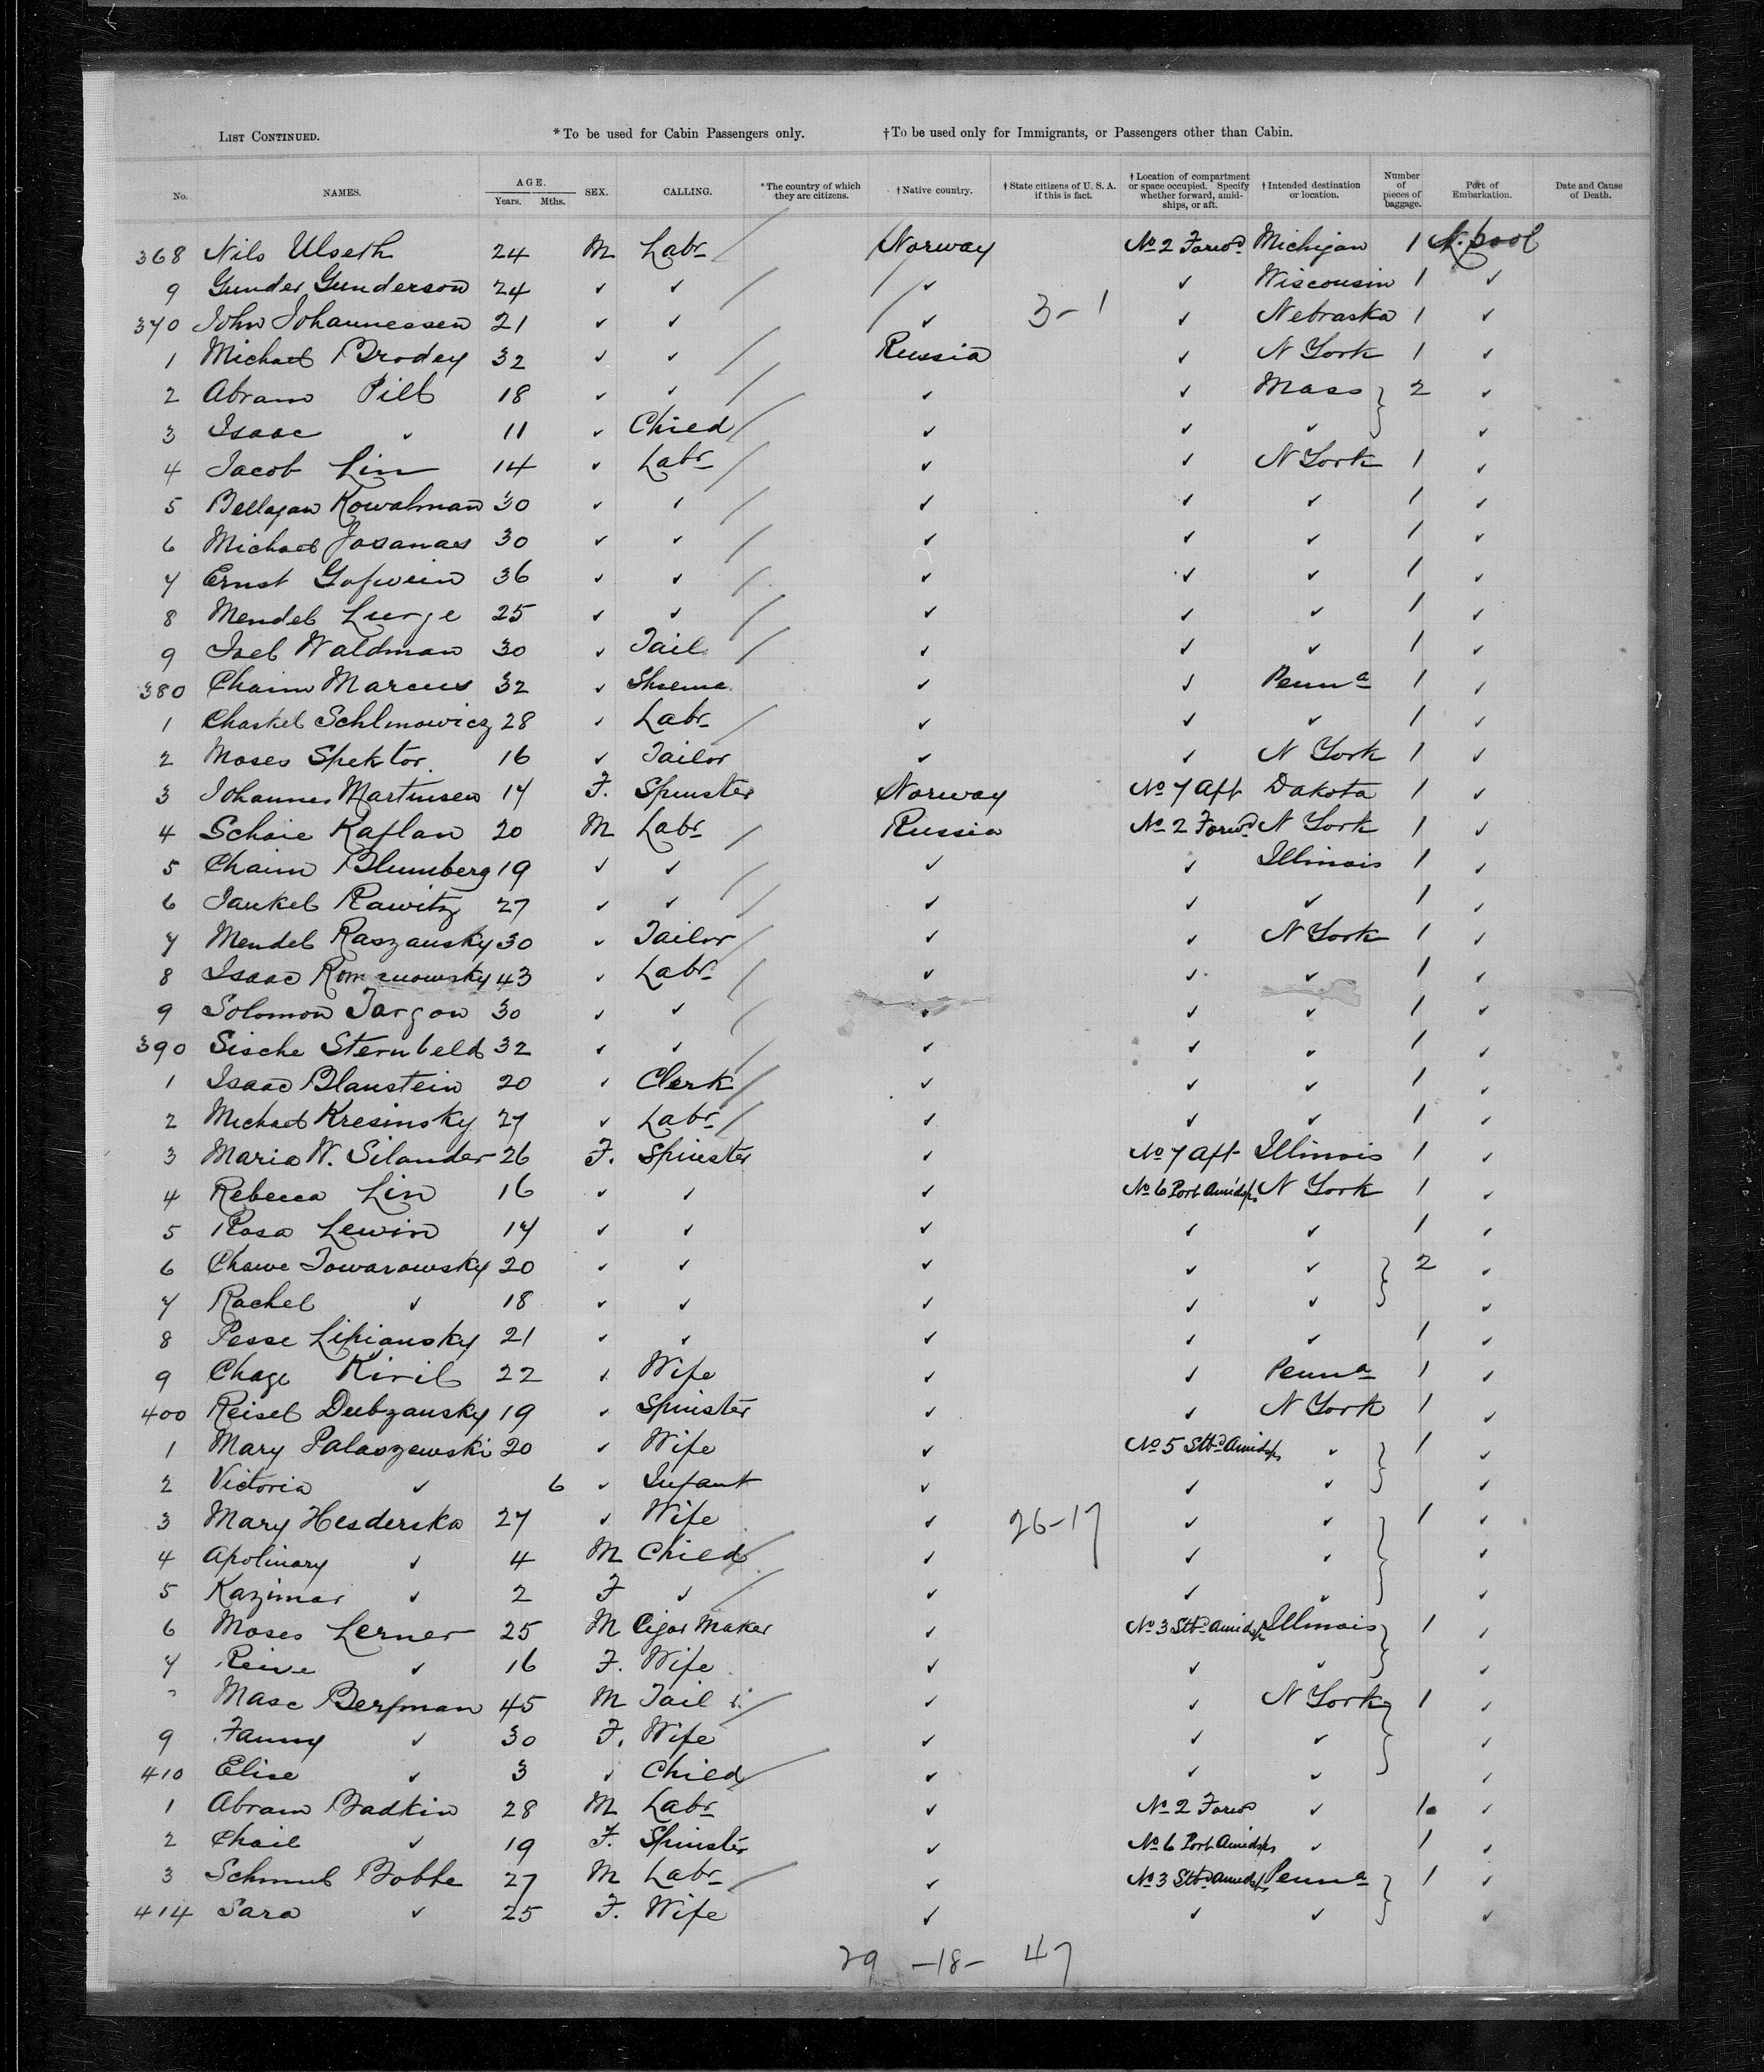 LIST CONTINUED. *To be used for Cabin Passengers only. †To be used only for Immigrants, or Passengers other than Cabin.
No. NAMES. AGE. Years. Mths. SEX. CALLING. *The country of which they are citizens. †Native country. †State citizens of U. S. A. if this is fact. †Location of compartment or space occupied. Specify whether forward, amidships, or aft. †Intended destination or location. Number of pieces of baggage. Port of Embarkation. Date and Cause of Death.
368 Nils Ulseth 24 M Labr Norway No 2 Forwd Michigan 1 L.pool
9 Gunder Gunderson 24 ✓ ✓ ✓ ✓ Wisconsin 1 ✓
370 John Johannessen 21 ✓ ✓ ✓ 3-1 ✓ Nebraska 1 ✓
1 Michael Brodey 32 ✓ ✓ Russia ✓ N York 1 ✓
2 Abram Pill 18 ✓ ✓ ✓ ✓ Mass } 2 ✓
3 Isaac ✓ 11 ✓ Child ✓ ✓ ✓ ✓
4 Jacob Lin 14 ✓ Labr ✓ ✓ N York 1 ✓
5 Kowalman 30 ✓ ✓ ✓ ✓ ✓ 1 ✓
6 Michael 30 ✓ ✓ ✓ ✓ ✓ 1 ✓
7 Ernst 36 ✓ ✓ ✓ ✓ ✓ 1 ✓
8 Mendel Lurje 25 ✓ ✓ ✓ ✓ ✓ 1 ✓
9 Joel Waldman 30 ✓ Tail ✓ ✓ ✓ 1 ✓
380 Chaim Marcus 32 ✓ Shoema ✓ ✓ Penna 1 ✓
1 Chaskel Schlmowicz 28 ✓ Labr ✓ ✓ ✓ 1 ✓
2 Moses Spektor 16 ✓ Tailor ✓ ✓ N York 1 ✓
3 Johannes Martinsen 17 F. Spinster Norway No 7 Aft Dakota 1 ✓
4 Schaie Kaplan 20 M Labr Russia No 2 Forwd N York 1 ✓
5 Chaim Blumberg 19 ✓ ✓ ✓ ✓ Illinois 1 ✓
6 Jankel Rawitz 27 ✓ ✓ ✓ ✓ ✓ 1 ✓
7 Mendel Raszansky 30 ✓ Tailor ✓ ✓ N York 1 ✓
8 Isaac Romanowsky 43 ✓ Labr ✓ ✓ ✓ 1 ✓
9 Solomon Targow 30 ✓ ✓ ✓ ✓ ✓ 1 ✓
390 Sische Sternbeld 32 ✓ ✓ ✓ ✓ ✓ 1 ✓
1 Isaac Blaustein 20 ✓ Clerk ✓ ✓ ✓ 1 ✓
2 Michael Kresinsky 27 ✓ Labr ✓ ✓ ✓ 1 ✓
3 Maria W. Silander 26 F. Spinster ✓ No 7 Aft Illinois 1 ✓
4 Rebecca Lin 16 ✓ ✓ ✓ No 6 Port Amidsps N York 1 ✓
5 Rosa Lewin 17 ✓ ✓ ✓ ✓ ✓ 1 ✓
6 Chawe Towarowsky 20 ✓ ✓ ✓ ✓ ✓ } 2 ✓
7 Rachel ✓ 18 ✓ ✓ ✓ ✓ ✓ ✓
8 Pesse Lipiansky 21 ✓ ✓ ✓ ✓ ✓ 1 ✓
9 Chage Kiril 22 ✓ Wife ✓ ✓ Penna 1 ✓
400 Reisel Dubzansky 19 ✓ Spinster ✓ ✓ N York 1 ✓
1 Mary Palaszewski 20 ✓ Wife ✓ No 5 Stbd Amidsps ✓ } 1 ✓
2 Victoria ✓ 6 ✓ Infant ✓ ✓ ✓ ✓
3 Mary Hesderska 27 ✓ Wife ✓ 26-17 ✓ ✓ } 1 ✓
4 Apolinary ✓ 4 M Child ✓ ✓ ✓ ✓
5 Kazimar ✓ 2 F ✓ ✓ ✓ ✓ ✓
6 Moses Lerner 25 M Cigar Maker ✓ No 3 Stbd Amidsps Illinois } 1 ✓
7 Reive ✓ 16 F. Wife ✓ ✓ ✓ ✓
Masc Bergman 45 M Tail ✓ ✓ N York } 1 ✓
9 Fanny ✓ 30 F. Wife ✓ ✓ ✓ ✓
410 Elise ✓ 3 ✓ Child ✓ ✓ ✓ ✓
1 Abram Badkin 28 M Labr ✓ No 2 Forwd ✓ 1 ✓
2 Chaie ✓ 19 F. Spinster ✓ No 6 Port Amidsps ✓ 1 ✓
3 Schmul Bobbe 27 M Labr ✓ No 3 Stbd Amidsps Penna } 1 ✓
414 Sara ✓ 25 F. Wife ✓ ✓ ✓ ✓
29 -18- 47